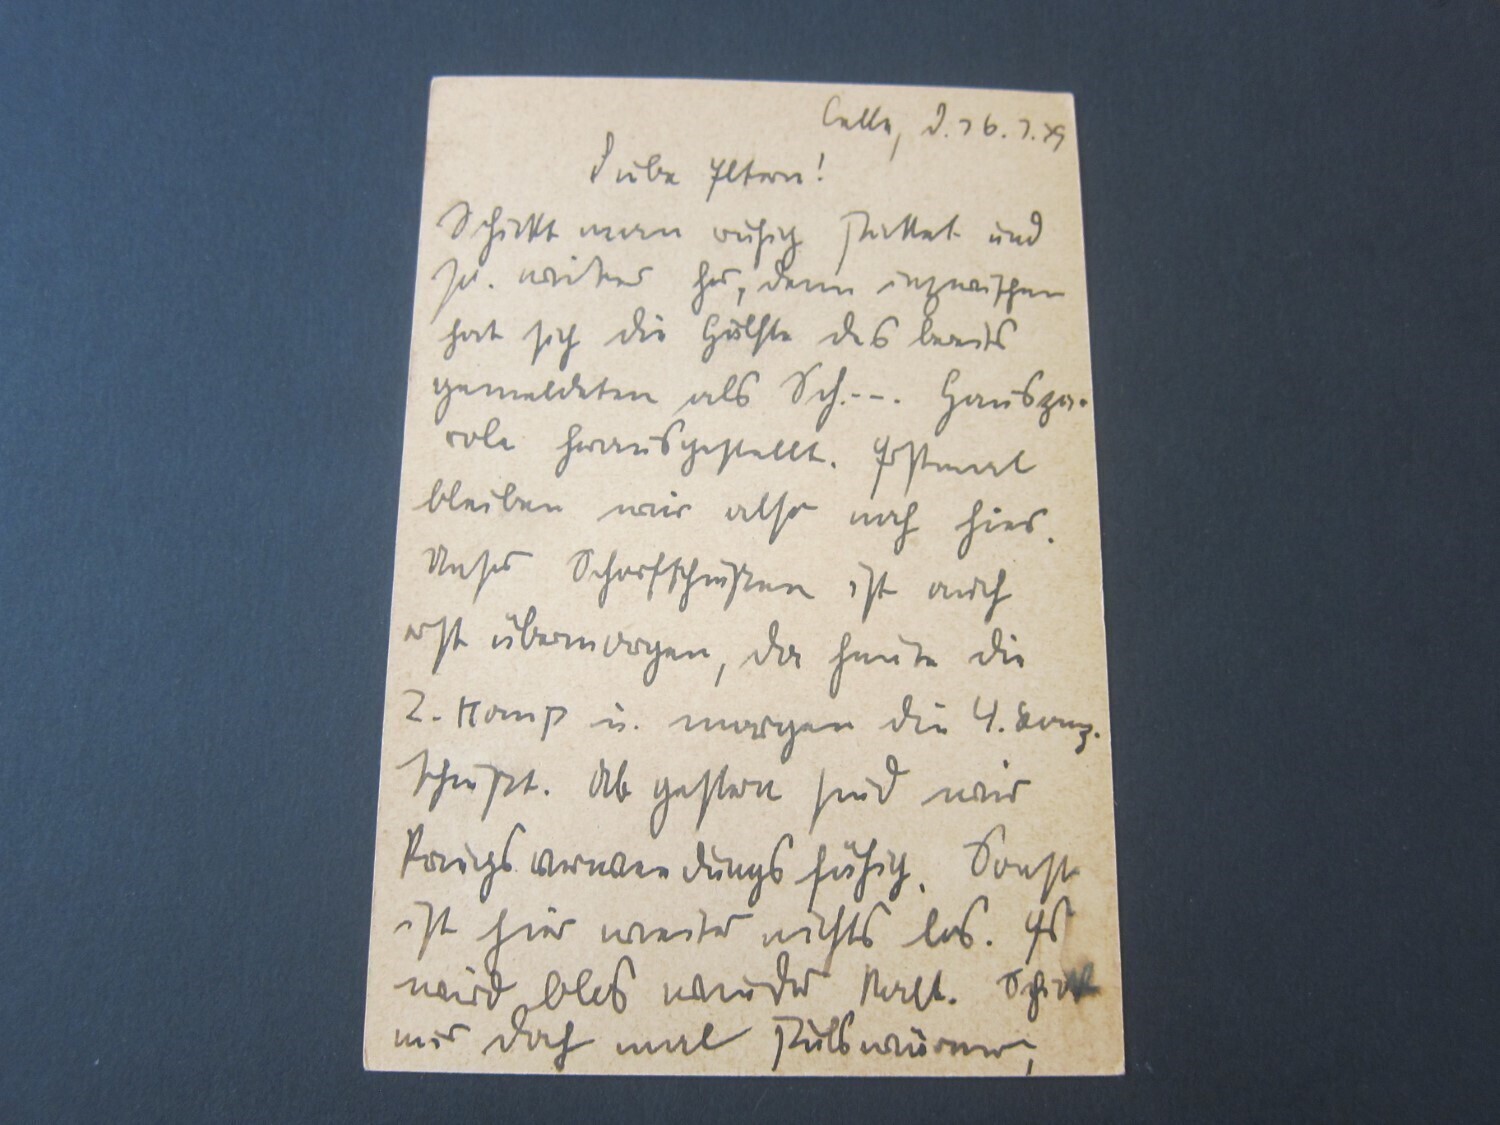 Celle, d. 16.1.
Liebe Eltern!
Schickt man ruhig Pakete und
so. weiter her, denn inzwischen
hat sich die Hälfte des bereits
gemeldeten als Sch.--. Hauspa-
role herausgestellt. Erstmal
bleiben wir also noch hier.
Unser Scharfschießen ist auch
erst übermorgen, da heute die
2. Komp u. morgen die 4. Komp.
schießt. Ab gestern sind wir
Kriegsverwendungsfähig. Sonst
ist hier weiter nichts los. Es
wird blos wieder kalt. Schickt
mir doch mal Pulswärmer,